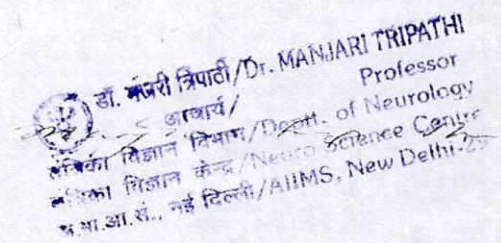 डॉ. मंजरी त्रिपाठी/Dr. MANJARI TRIPATHI
आचार्य/ Professor
तंत्रिका विज्ञान विभाग/Deptt. of Neurology
तंत्रिका विज्ञान केन्द्र/Neuro Science Centre
अ.भा.आ.सं., नई दिल्ली/AIIMS, New Delhi-29